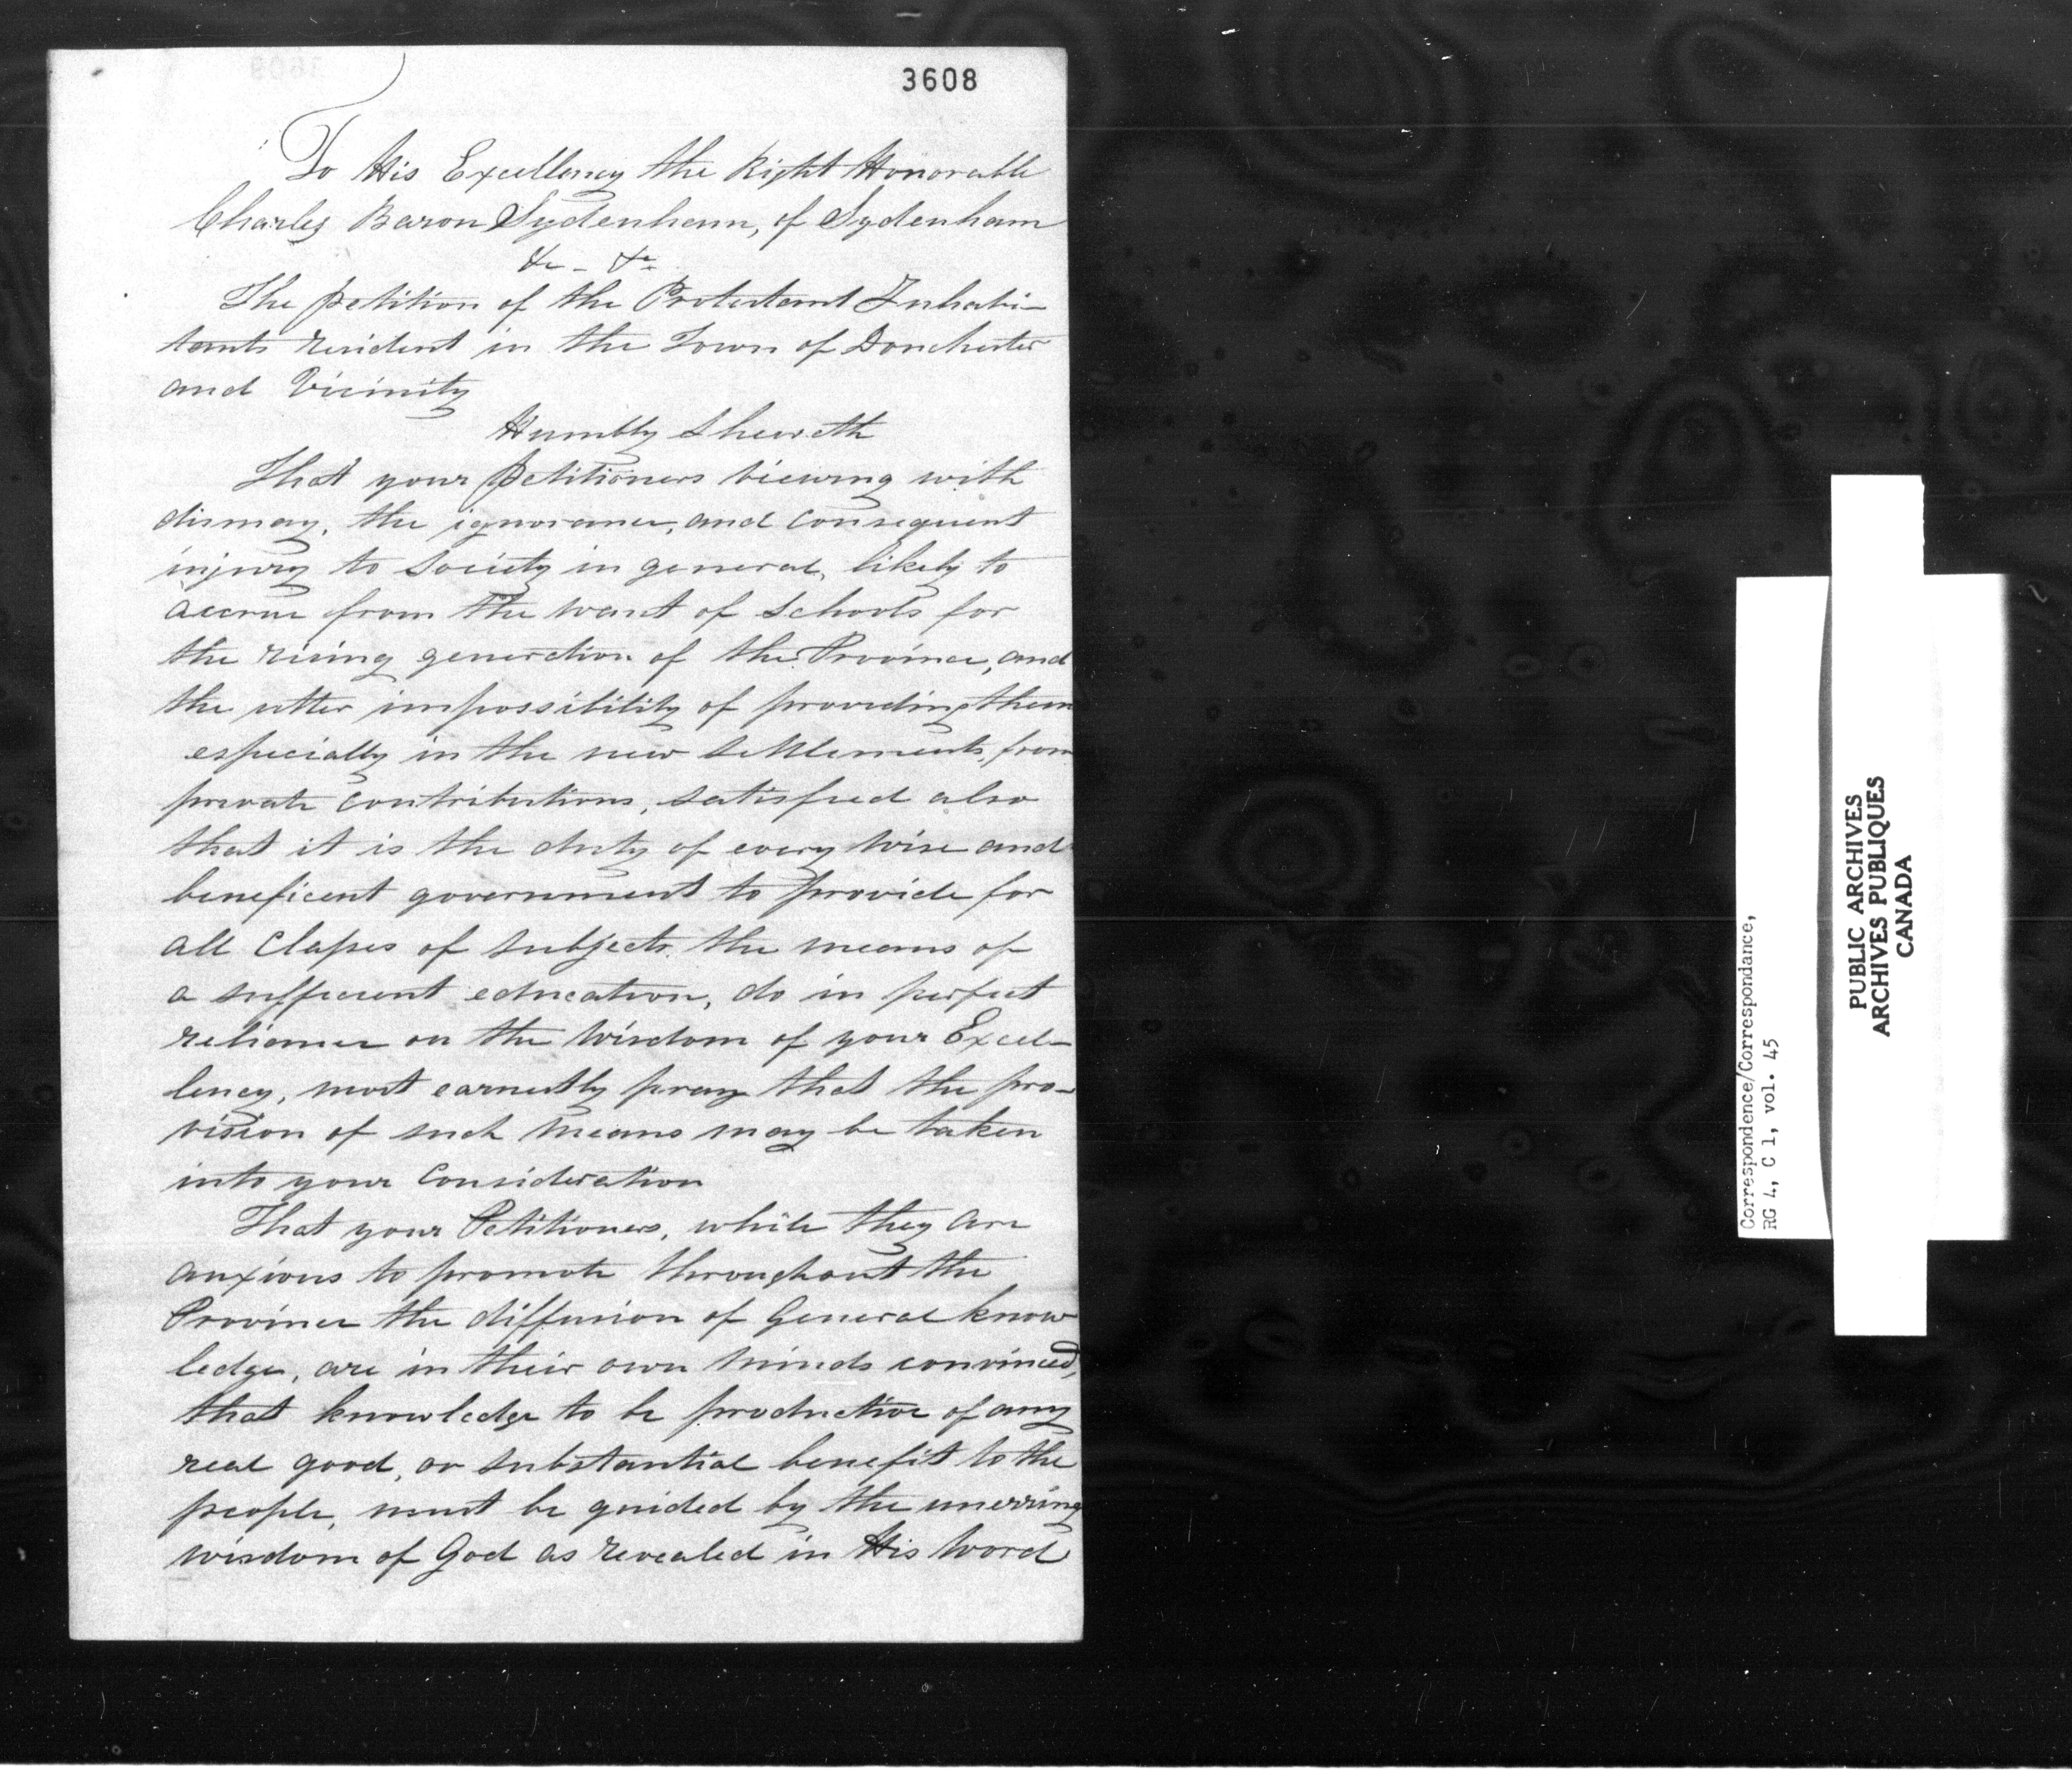 3608
To His Excellency the Right Honorable
Charles Baron Sydenham, of Sydenham
&c - &c
The petition of the Protestant Inhabi-
tants resident in the Town of Dorchester
and Vicinity
Humbly Sheweth
That your petitioners viewing with
dismay, the ignorance, and consequent
injury to Society in general, likely to
accrue from the want of Schools for
the rising generation of the Province, and
the utter impossibility of providing them
especially in the new Settlements, from
private contributions, satisfied also
that it is the duty of every wise and
beneficent government to provide for
all Classes of subjects the means of
a sufficient education, do in perfect
reliance on the Wisdom of your Excel-
lency, most earnestly pray that the pro-
vision of such means may be taken
into your Consideration
That your Petitioners, while they are
anxious to promote throughout the
Province the diffusion of General know
ledge, are in their own minds convinced,
that knowledge to be productive of any
real good, or substantial benefit to the
people, must be guided by the unerring
wisdom of God as revealed in His Word
Correspondence/Correspondance,
RG 4, C 1, vol. 45
PUBLIC ARCHIVES
ARCHIVES PUBLIQUES
CANADA